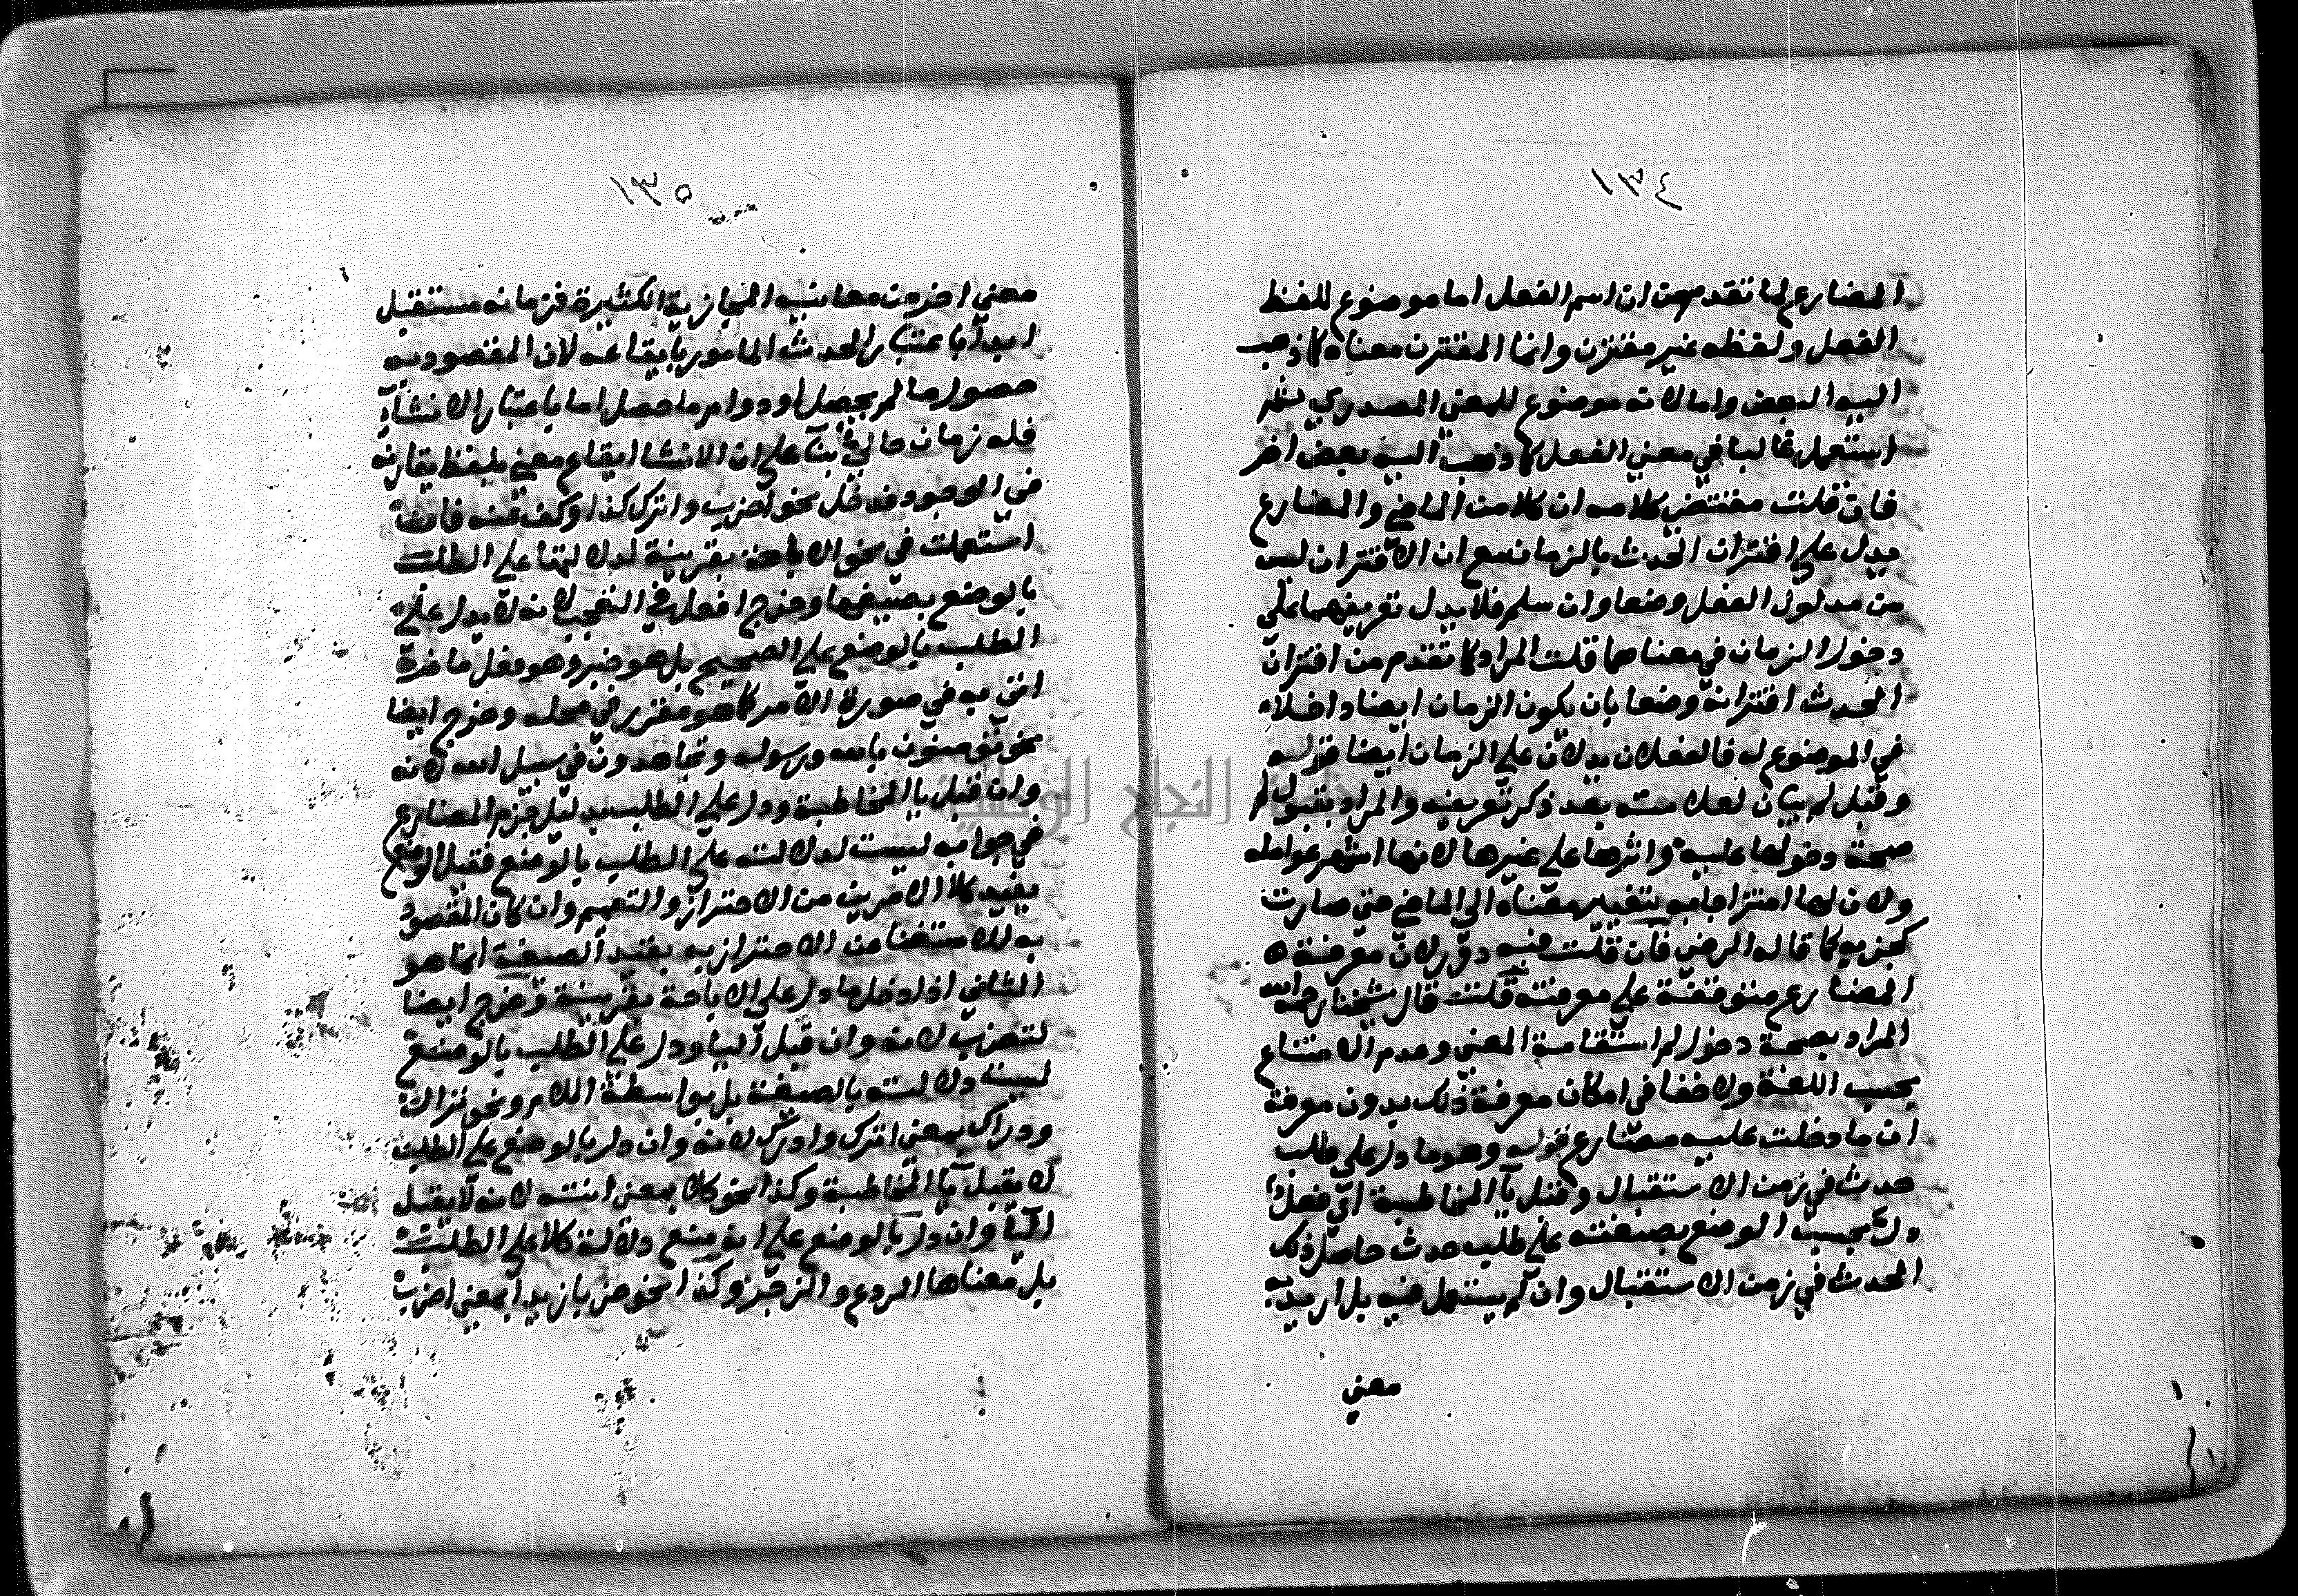 ١٣٤
المضارع لما تقدم من ان اسم الفعل اما موضوع للفظ
الفعل ولفظه غير مقترن وانما المقترن معناه كما ذهب
اليه البعض واما لانه موضوع للمعني المصدري ثم
استعمل غالبا في معني الفعل كما ذهب اليه بعض اخر
فان قلت مقتضي كلامه ان كلا من الماضي والمضارع
يدل علي اقتران الحدث بالزمان مع ان الاقتران ليس
من مدلول الفعل وضعا وان سلم فلا يدل تعريفهما علي
دخول الزمان في معناهما قلت المراد كما تقدم من اقتران
الحدث اقترانه وضعا بان يكون الزمان ايضا داخلا
في الموضوع له فالفعلان يدلان علي الزمان ايضا قوله
وقبل لم بيان لعلامته بعد ذكر تعريفه والمراد بقبول لم
صحة دخولها عليه واثرها علي غيرها لانها اشهر عوامله
ولان لها امتزاجا به بتغيير معناه الي الماضي حتي صارت
كجزيه كما قاله الرضي فان قلت فيه دور لان معرفة
المضارع متوقفة علي معرفته قلت قال شيخنا رحمه الله
المراد بصحة دخول لم استقامة المعني وعدم الامتناع
بحسب اللغة ولا خفا في امكان معرفة ذلك بدون معرفة
ان ما دخلت عليه مضارع قوله وهو ما دل علي طلب
حدث في زمن الاستقبال وقبل يآ المخاطبة اي فعل
دل بحسب الوضع بصيغته علي طلب حدث حاصل ذلك
الحدث في زمن الاستقبال وان لم يستعمل فيه بل اريد به
معني
١٣٥
معني اخر من معانيه المجازية الكثيرة فزمانه مستقبل
ابدا باعتبار الحدث المامور بايقاعه لان المقصود به
حصول ما لم يحصل او دوام ما حصل اما باعتبار الانشآ
فله زمان حالي بنآ علي ان الانشا ايقاع معني بلفظ يقارنه
في الوجود فدخل نحو اضرب واترك كذا وكف عنه فانها
استعملت في نحو الاباحة بقرينة لدلالتها علي الطلب
بالوضع بصيغها وخرج افعل في التعجب لانه لا يدل علي
الطلب بالوضع علي الصحيح بل هو خبر وهو فعل ماض
اتي به في صورة الامر كما هو مقرر في محله وخرج ايضا
نحو تؤمنون بالله ورسوله وتجاهدون في سبيل الله لانه
وان قبل يا المخاطبة ودل علي الطلب بدليل جزم المضارع
في جوابه ليست لدلالته علي الطلب بالوضع فقبل الوضع
يفيد كلا الامرين من الاحتراز والتعميم وان كان المقصود
به للاستغنا عن الاحتراز به بقيد الصيغة انما هو
الثاني اذا دخل ما دل علي الاباحة بقرينة وخرج ايضا
لتضرب لانه وان قبل اليا ودل علي الطلب بالوضع
ليست دلالته بالصيغة بل بواسطة اللام ونحو نزال
ودراك بمعني اترك وادرك لانه وان دل بالوضع علي الطلب
لا يقبل يآ المخاطبة وكذا نحو كلا بمعني انته لانه لا يقبل
اليآ وان دل بالوضع علي دلالة كلا علي الطلب
بل معناها الردع والزجر وكذا نحو ضربا زيدا بمعني اضرب